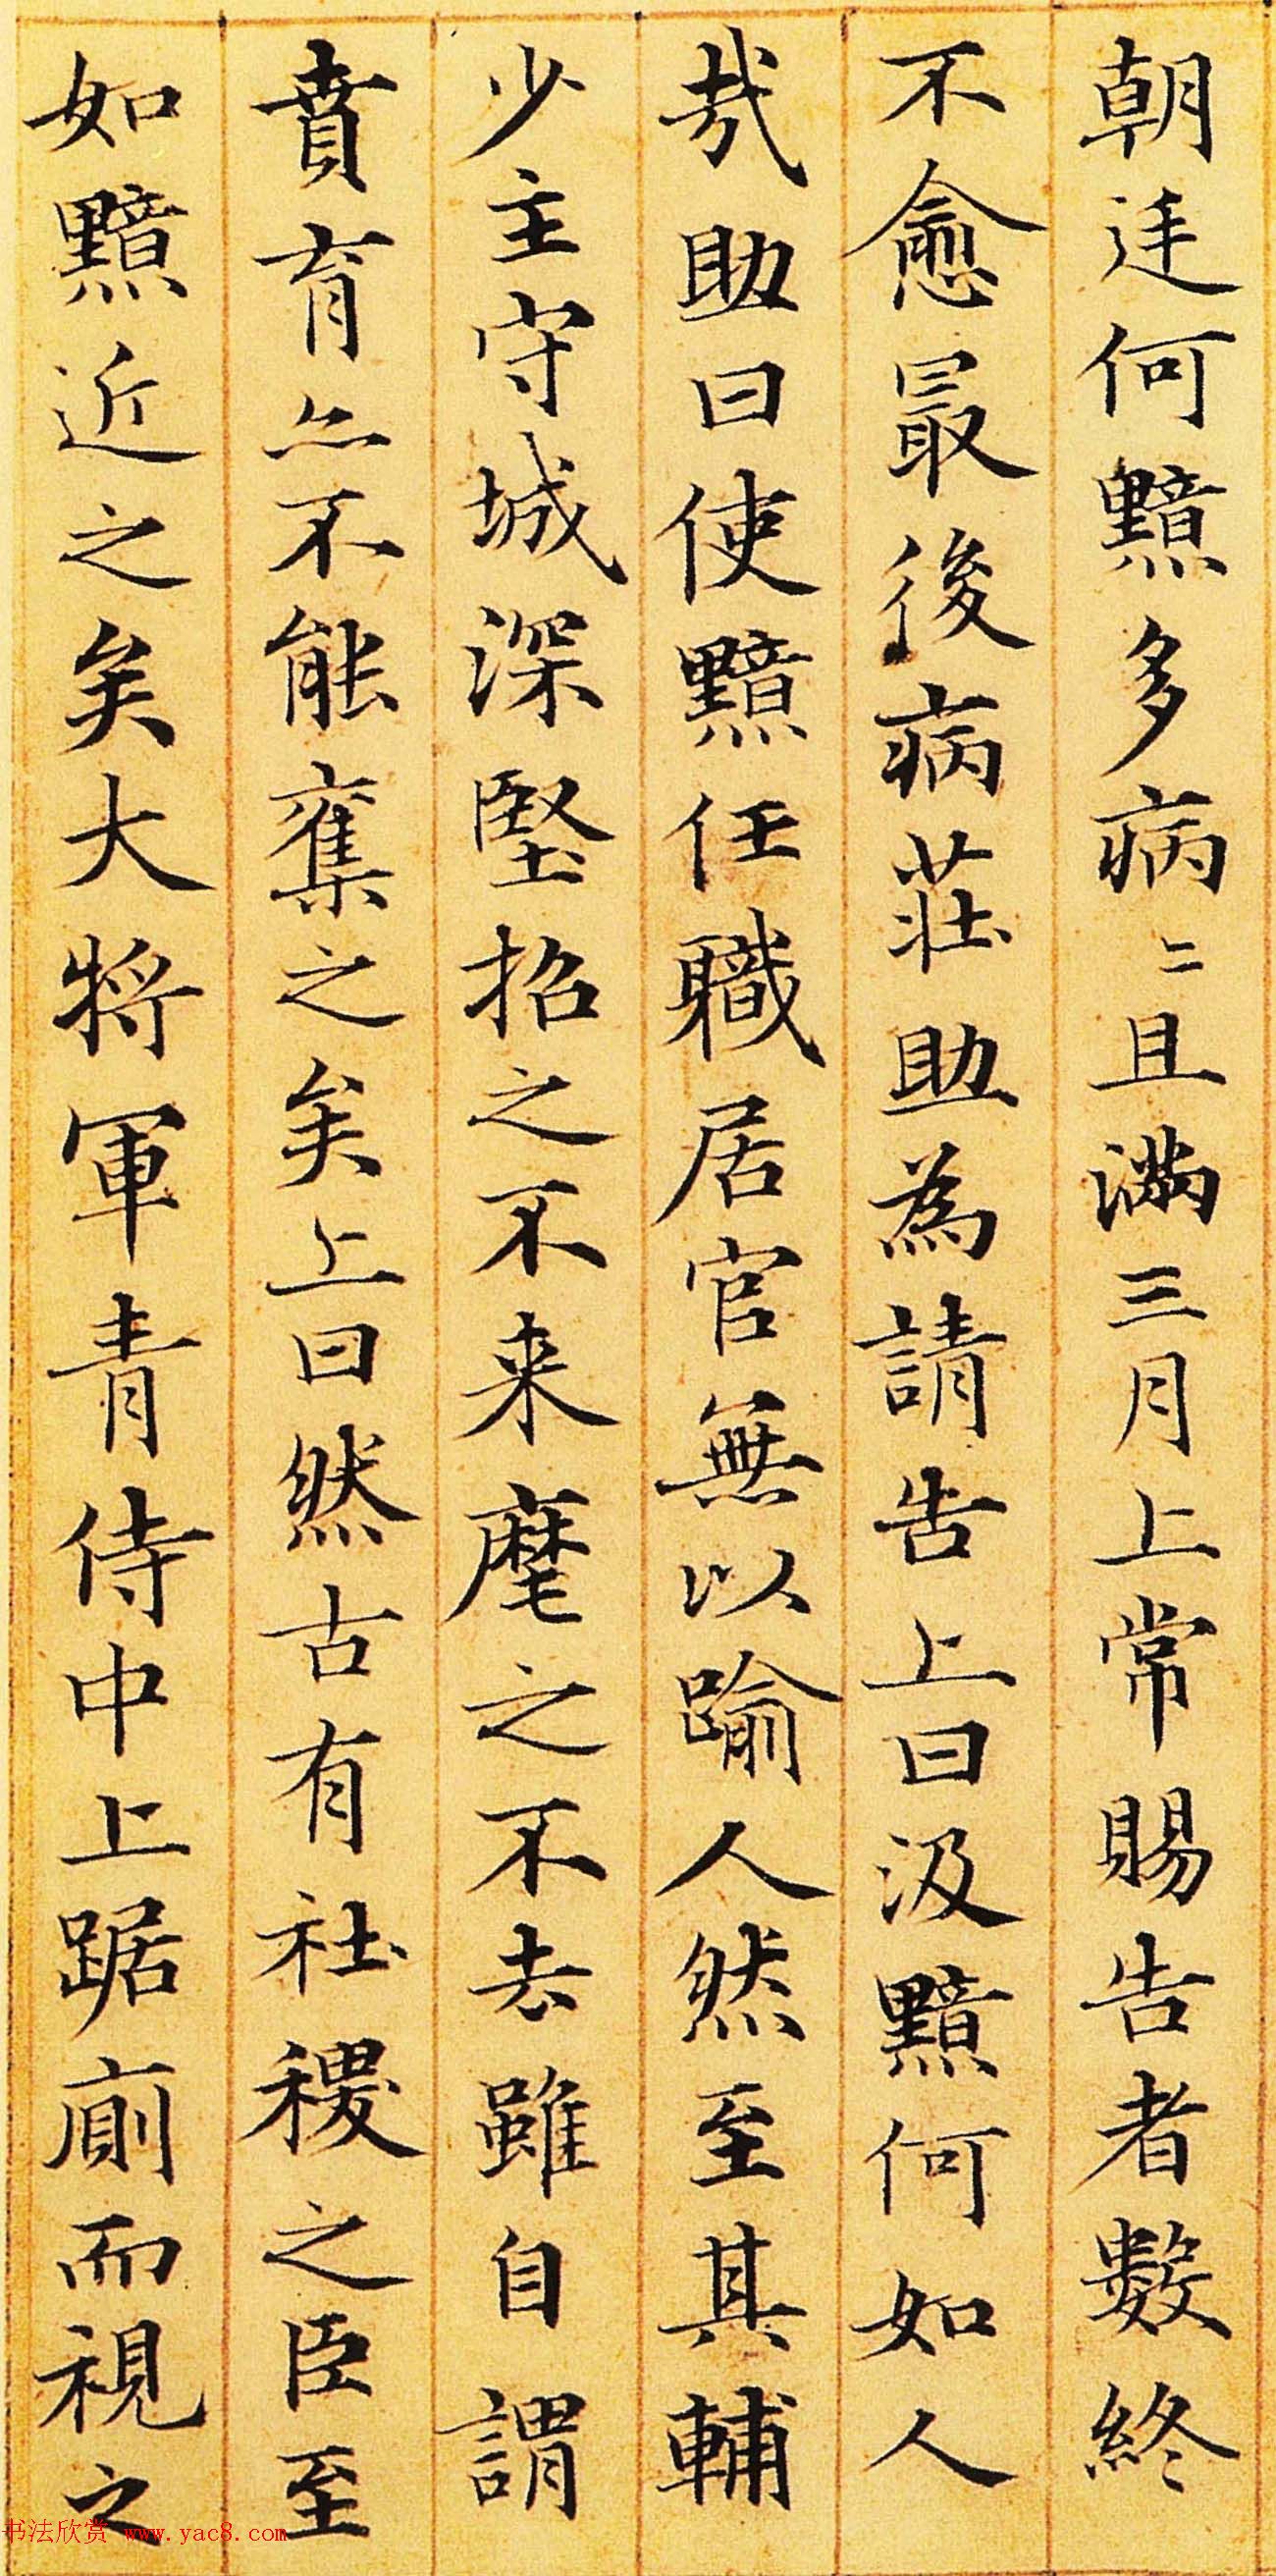 朝廷何黯多病〻且滿三月上常賜告者數終
不愈最後病莊助為請告上曰汲黯何如人
㢤助曰使黯任職居官無以踰人然至其輔
少主守城深堅招之不来麾之不去雖自謂
賁育亦不能奪之矣上曰然古有社稷之臣至
如黯近之矣大将軍青侍中上踞廁而視之
书法欣赏 www.yac8.com